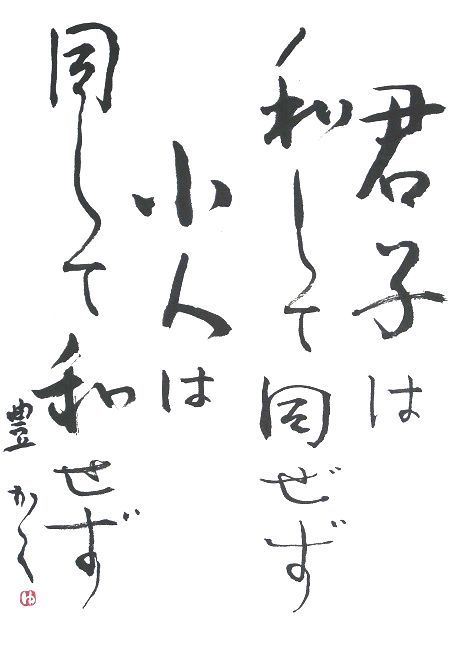 君子は
和して同ぜず
小人は
同して和せず
豊かく
ゆ